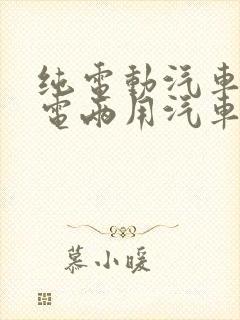 纯電動汽車
電兩用汽車
慕小暖